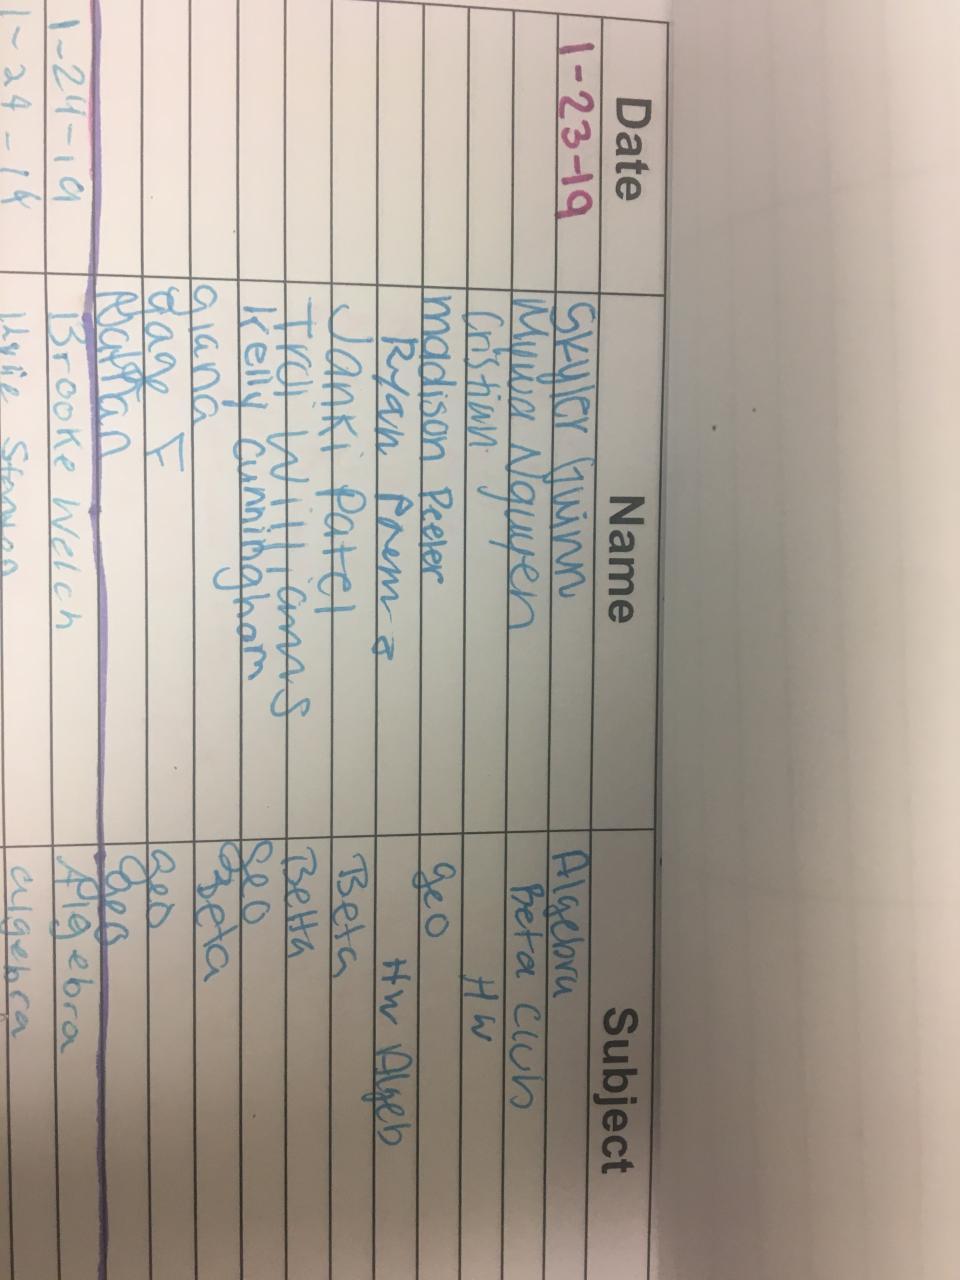 Date Name Subject
1-23-19 Skyler Guinn Algebra
Mywa Nguyen Beta Club
Cristian HW
Madison Peeler geo
Ryan HW Algeb
Janki Patel Beta
Traci Williams Betta
Kelly Cunningham geo
giana Beta
gage F geo
Nathan Geo
1-24-19 Brooke Welch Algebra
1-24-19 algebra